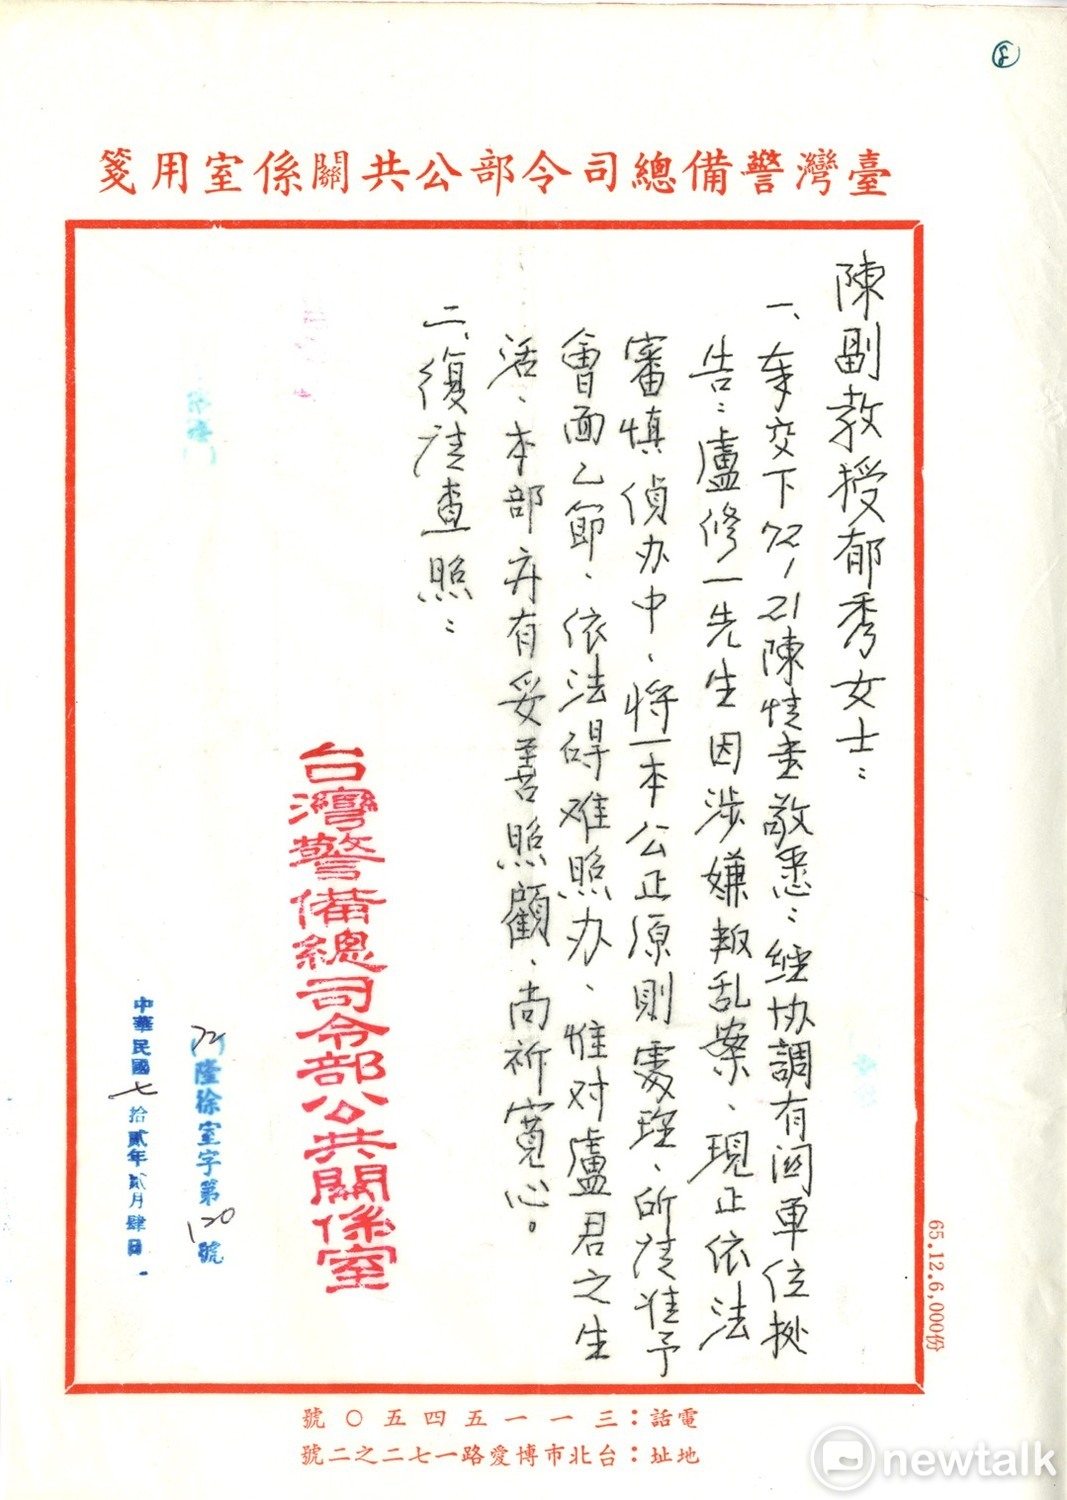 臺灣警備總司令部公共關係室用箋
陳副教授郁秀女士：
一、奉交下72、1、21陳情書敬悉：經协調有関單位拠
告：盧修一先生因涉嫌叛乱案、現正依法
審慎偵办中、將一本公正原則處理、所请准予
會面乙節、依法碍难照办、惟对盧君之生
活、本部亦有妥善照顧、尚祈寬心。
二、復请查照：
台灣警備總司令部公共關係室
72隆徐室字第120號
中華民國七拾貳年貳月肆日
65.12.6,000份
電話：三一一五四五〇號
地址：台北市博愛路一七二之二號
newtalk